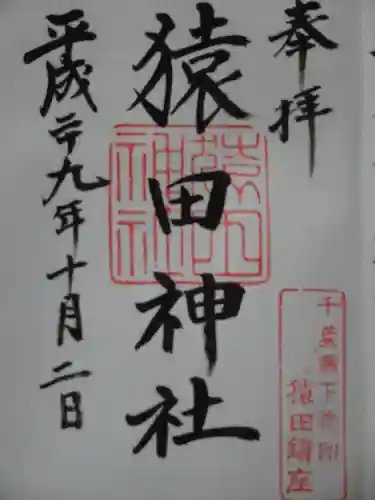 奉拝
猿田神社
平成二十九年十月二日
猿田神社
猿田鎮座